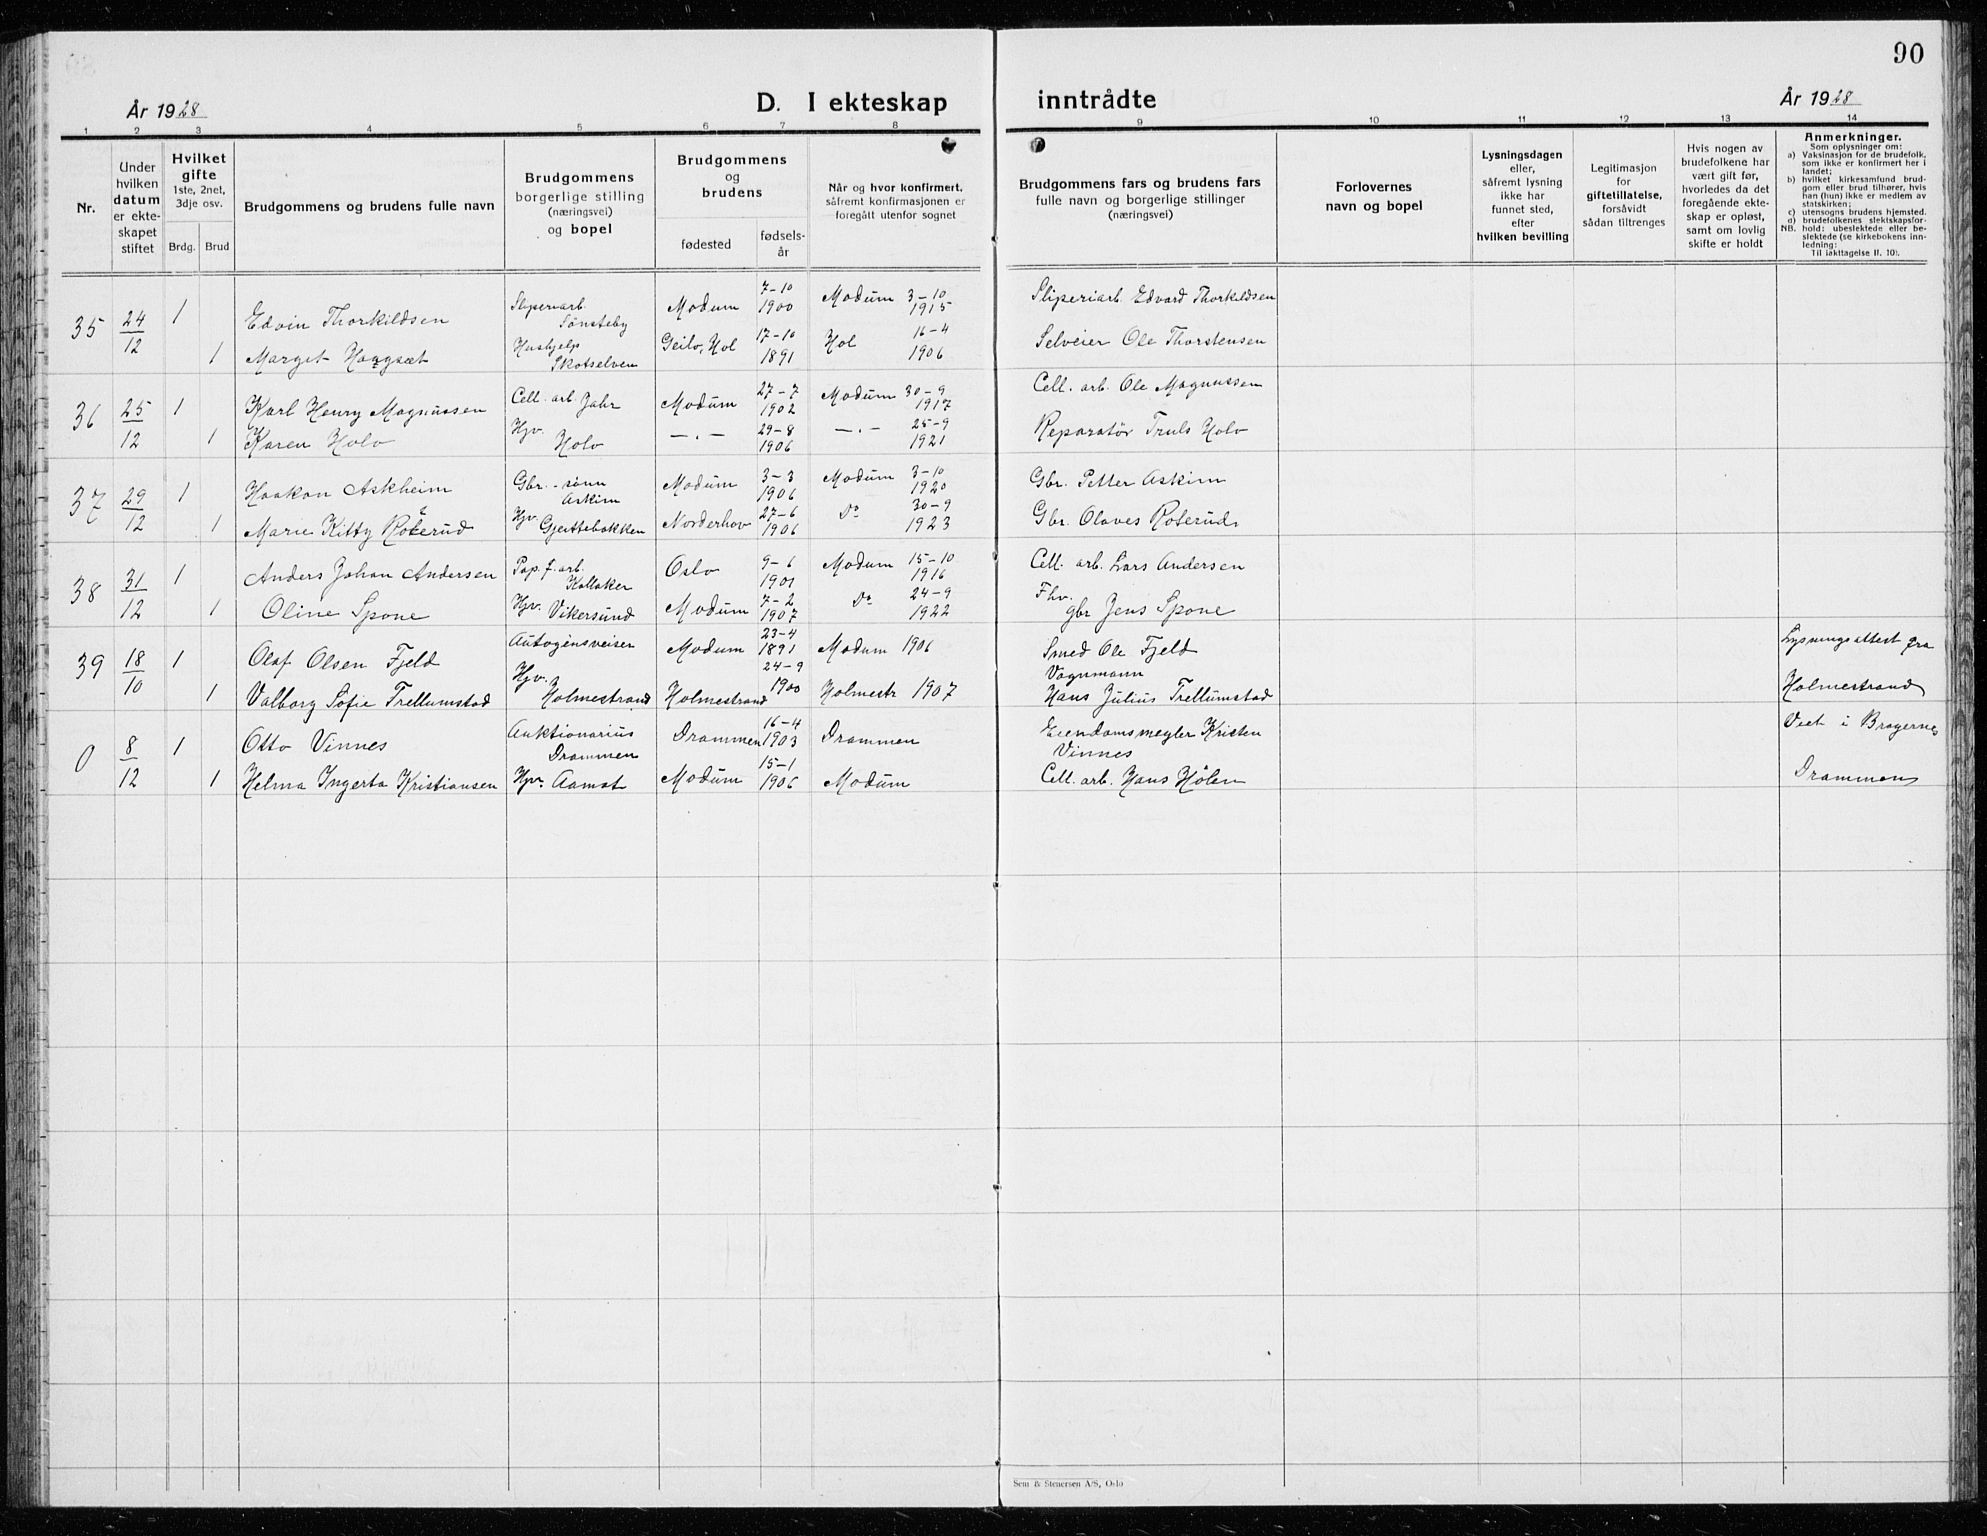 90
År 1928
D. I ekteskap
inntrådte
År 1928
1 2 3 4 5 6 7 8 9 10 11 12 13 14
Nr.
Under
hvilken
datum
er ekte-
skapet
stiftet
Hvilket
gifte
1ste, 2net,
3dje osv.
Brdg. Brud
Brudgommens og brudens fulle navn
Brudgommens
borgerlige stilling
(næringsvei)
og bopel
Brudgommens
og
brudens
fødested
fødsels-
år
Når og hvor konfirmert,
såfremt konfirmasjonen er
foregått utenfor sognet
Brudgommens fars og brudens fars
fulle navn og borgerlige stillinger
(næringsvei)
Forlovernes
navn og bopel
Lysningsdagen
eller,
såfremt lysning
ikke har
funnet sted,
efter
hvilken bevilling
Legitimasjon
for
giftetillatelse,
forsåvidt
sådan tiltrenges
Hvis nogen av
brudefolkene har
vært gift før,
hvorledes da det
foregående ekte-
skap er opløst,
samt om lovlig
skifte er holdt
Anmerkninger.
Som oplysninger om:
a) Vaksinasjon for de brudefolk,
som ikke er konfirmert her i
landet;
b) hvilket kirkesamfund brud-
gom eller brud tilhører, hvis
han (hun) ikke er medlem av
statskirken;
c) utensogns brudens hjemsted.
d) brudefolkenes slektskapsfor-
NB. hold: ubeslektede eller be-
slektede (se kirkebokens inn-
ledning:
Til iakttagelse II. 10).
35 24/12 1 Edvin Thorkildsen Sliperiarb. Sønsteby Modum 7-10 1900 Modum 3-10 1915 Sliperiarb. Edvard Thorkildsen
1 Margit Haggsæt Hushjelp Skotselven Geilo, Hol 17-10 1891 Hol 16-4 1906 Selveier Ole Thorstensen
36 25/12 1 Karl Henry Magnussen Cell. arb. Jahr Modum 27-7 1902 Modum 30-9 1917 Cell. arb. Ole Magnussen
1 Karen Holo Hjv. Holo —.— 29-8 1906 —.— 25-9 1921 Reparatør Truls Holo
37 29/12 1 Haakon Askheim Gbr.-sønn Askim Modum 3-3 1906 Modum 3-10 1920 Gbr. Petter Askim
1 Marie Kitty Roterud Hjv. Gjettebakken Norderhov 27-6 1906 Do 30-9 1923 Gbr. Olaves Roterud
38 31/12 1 Anders Johan Andersen Pap.f.arb. Kallaker Oslo 9-6 1901 Modum 15-10 1916 Cell. arb. Lars Andersen
1 Oline Spone Hjv. Vikersund Modum 7-2 1907 Do 24-9 1922 Fhv. gbr Jens Spone
39 18/10 1 Olaf Olsen Fjeld Autogensveiser Modum 23-4 1891 Modum 1906 Smed Ole Fjeld Lysningsattest fra
1 Valborg Sofie Trellumstad Hjv. Holmestrand Holmestrand 24-9 1900 Holmestr 1907 Vognmann Hans Julius Trellumstad Holmestrand
0 8/12 1 Otto Vinnes Auktionarius Drammen Drammen 16-4 1903 Drammen Eiendomsmegler Kristen Vinnes Viet i Bragernes
1 Helma Ingerta Kristiansen Hjv. Aamot Modum 15-1 1906 Modum Cell. arb. Hans Hølen Drammen
Sem & Stenersen A/S, Oslo